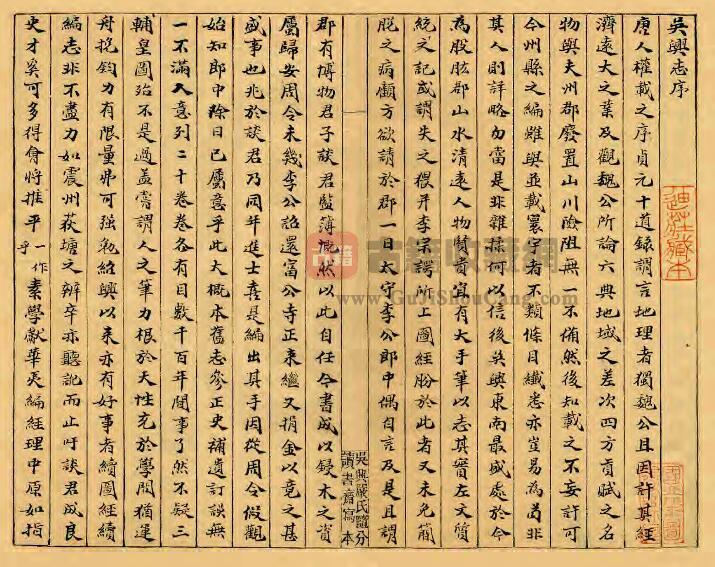 吳興志序
唐人權載之序貞元十道錄謂言地理者獨魏公且因許其經
濟遠大之業及觀魏公所論六典地域之差次四方貢賦之名
物與夫州郡廢置山川險阻無一不備然後知載之不妄許可
今州縣之編雖與並載寰宇者不類條目纖悉亦豈易為茍非
其人則詳略勿當是非雜揉何以信後吳興東南最盛處於今
為股肱郡山水清遠人物賢貴宜有大手筆以志其實左文質
統之記或謂失之猥并李宗諤所上圖經昉於此者又未免簡
脫之病顧方欲請於郡一日太守李公郎中偶自言及是且謂
郡有博物君子談君監簿慨然以此自任今書成以鋟木之資
屬歸安周令未幾李公詔還富公寺正來繼又捐金以竟之甚
盛事也兆於談君乃同年進士喜是編出其手因從周令假觀
始知郎中除日已屬意乎此大概本舊志參正史補遺訂誤無
一不滿人意列二十卷卷各有目數千百年間事了然不疑三
輔黃圖殆不是過蓋嘗謂人之筆力根於天性充於學問猶運
舟挽鈞力有限量弗可强勉紹興以來亦有好事者續圖經續
編志非不盡力如震州荻塘之辨卒亦聽訛而止吁談君成良
史才奚可多得會將推平一作乎素學獻華夷編經理中原如指
吳興嚴氏隨分讀書齋寫本
www.GuJiShouCang.com